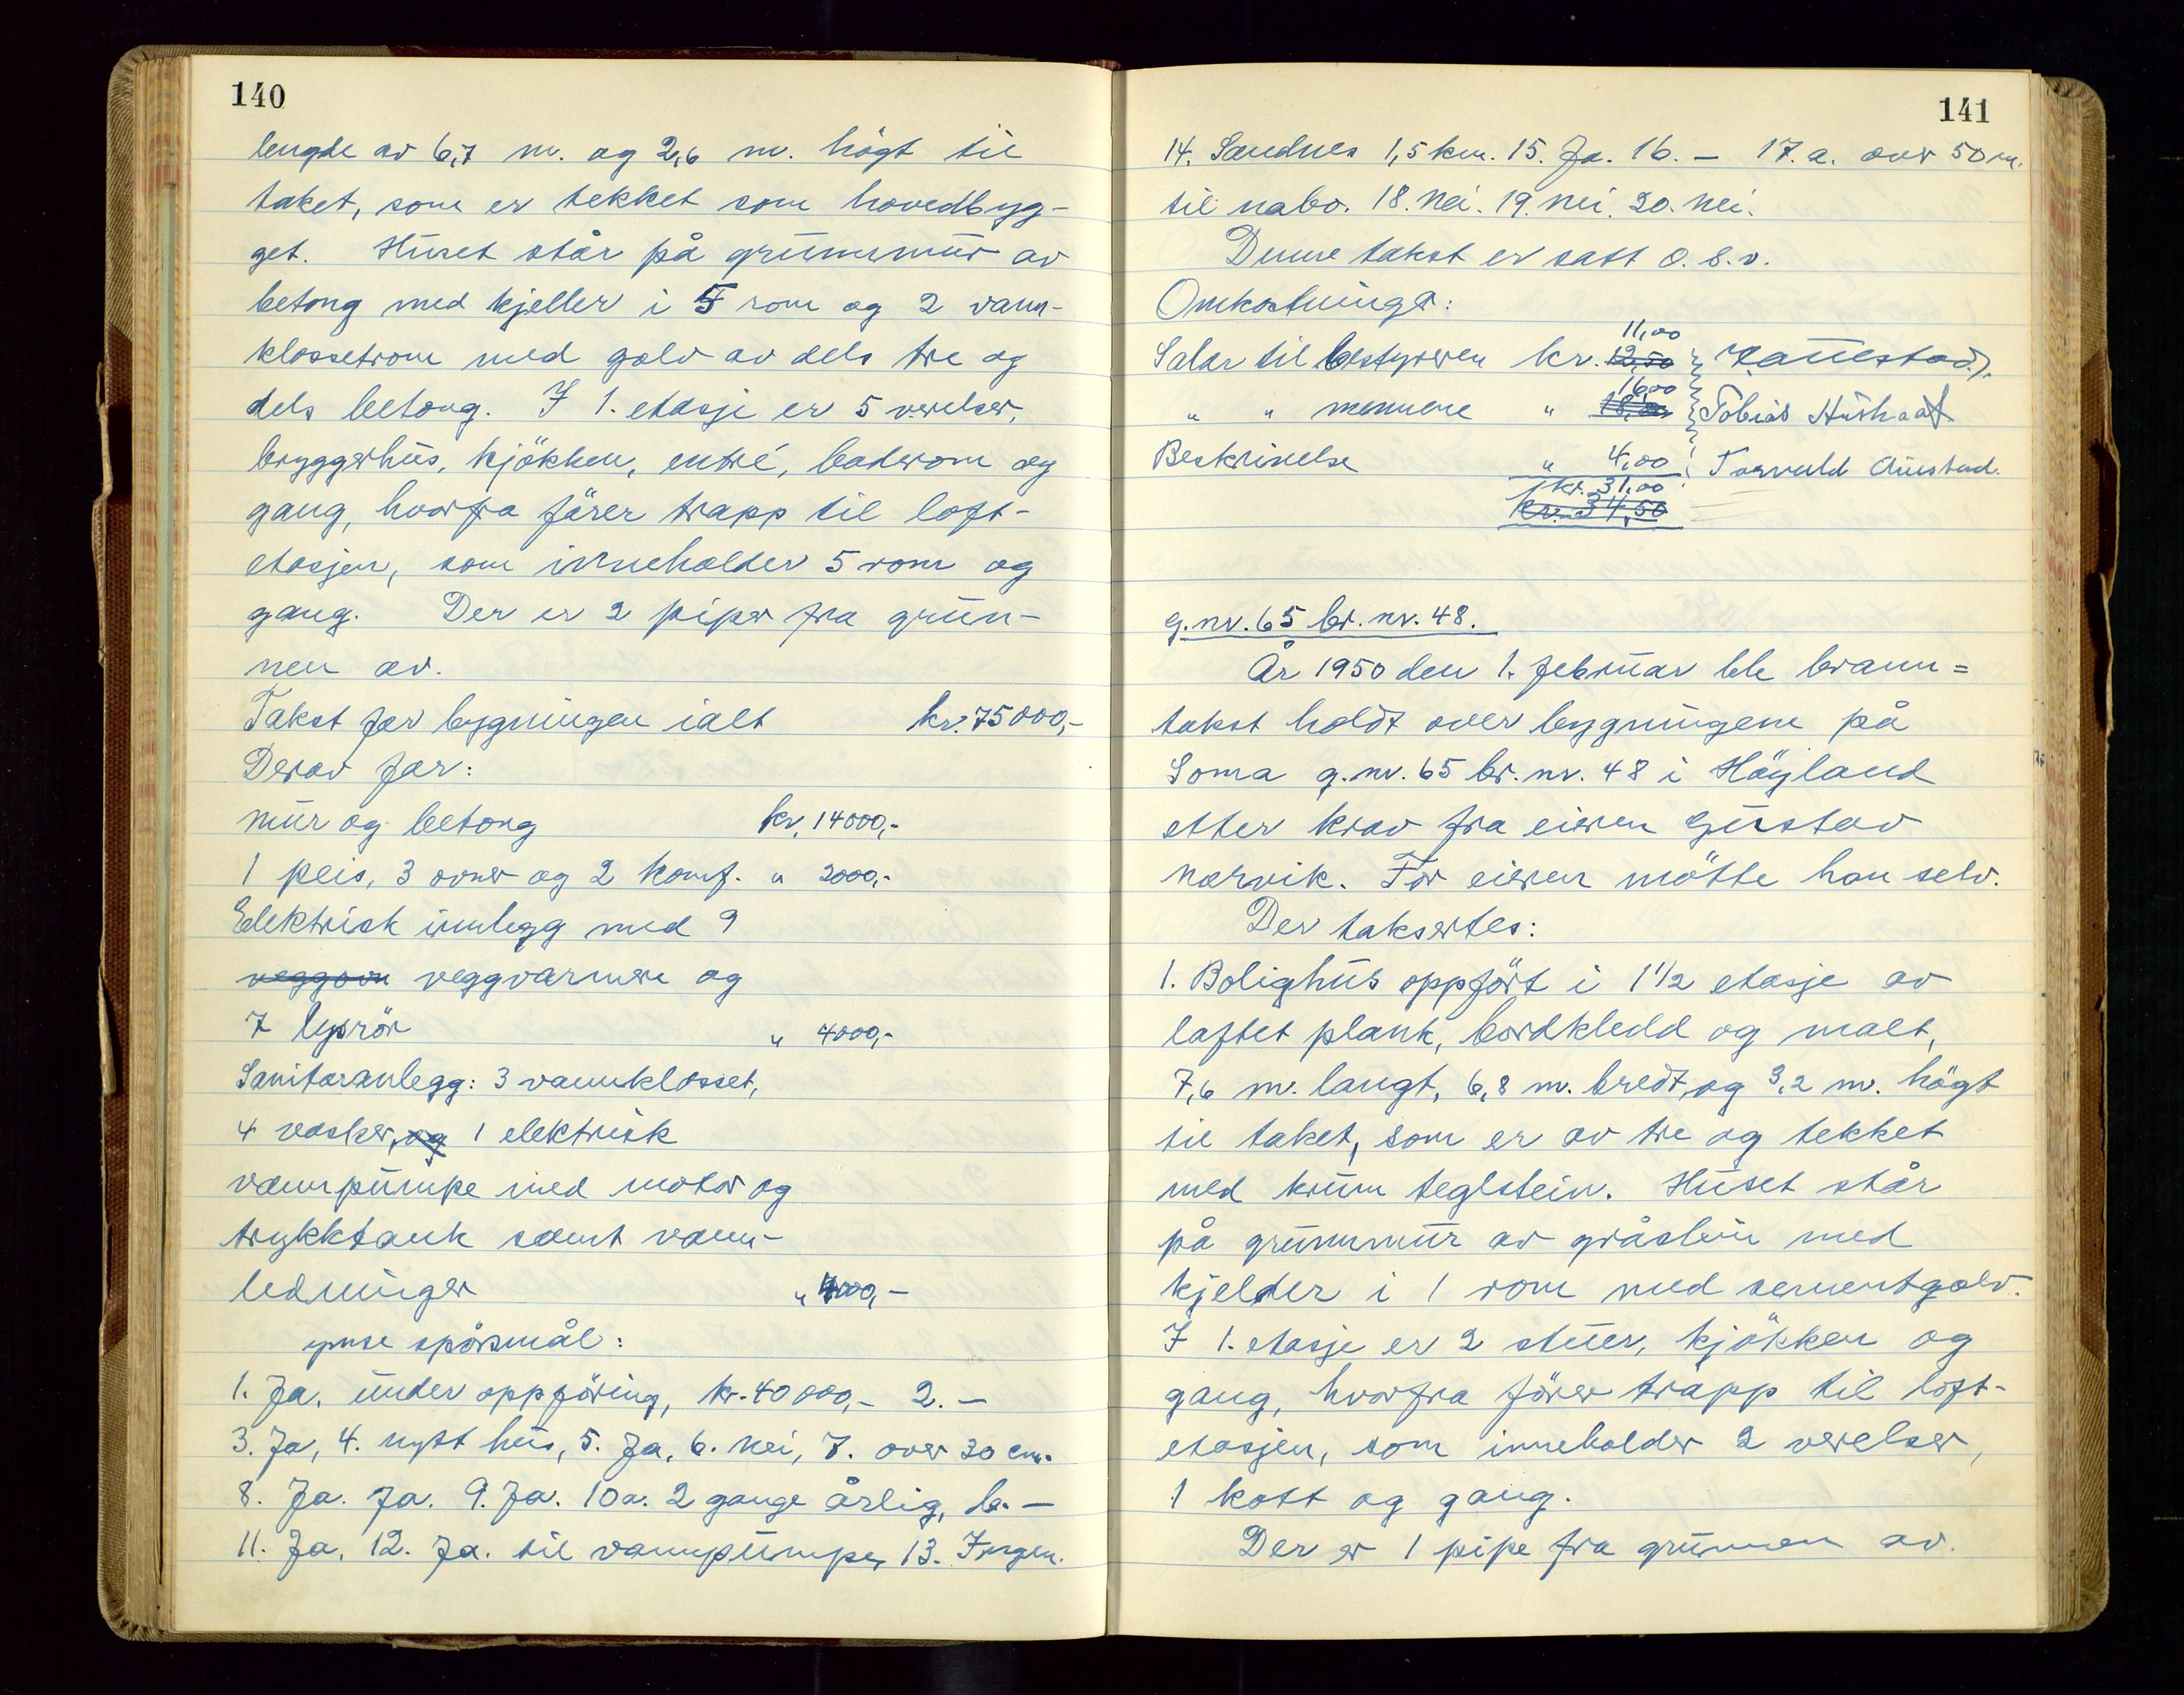 140
lengde av 6,7 m. og 2,6 m. högt til
taket, som er tekket som hovedbyg-
get. Huset står på grunnmur av
betong med kjeller i 5 rom og 2 vann-
klossetrom med golv av dels tre og
dels betong. I 1. etasje er 5 verelser,
bryggerhus, kjökken, entré, baderom og
gang, hvorfra förer trapp til loft-
etasjen, som inneholder 5 rom og
gang. Der er 2 piper fra grun-
nen av.
Takst for bygningen ialt kr. 75000,-
Derav for:
mur og betong kr. 14000,-
1 peis, 3 ovner og 2 komf. " 2000,-
Elektrisk innlegg med 9
veggovn veggvarmere og
7 lysrör " 4000,-
Sanitæranlegg: 3 vannklosset,
4 vasker, og 1 elektrisk
vannpumpe med motor og
trykktank samt vann-
ledninger " 4000,-
ymse spörsmål:
1. Ja, under oppföring, kr. 40000,- 2. -
3. Ja, 4. nytt hus, 5. Ja, 6. Nei, 7. over 30 cm.
8. Ja. Ja. 9. Ja. 10a. 2 gange årlig, b. -
11. Ja, 12. Ja. til vannpumpe, 13. Ingen.
141
14. Sandnes 1,5 km. 15. Ja. 16. - 17. a. over 50 m.
til nabo. 18. Nei. 19. Nei. 20. Nei.
Denne takst er satt o.s.v.
Omkostninger:
11,00
Salar til bestyreren kr. 12,50
16,00
" " mennene " 18,00 Tobias Husha
Beskrivelse " 4,00 Torvald Austad.
kr. 31,00
kr. 34,50
g.nr. 65 br. nr. 48.
År 1950 den 1. februar ble brann=
takst holdt over bygningene på
Soma g.nr. 65 br. nr. 48 i Höyland
etter krav fra eieren Gustav
Norvik. For eieren mötte han selv.
Der taksertes:
1. Bolighus oppfört i 1 1/2 etasje av
laftet plank, bordkledd og malt,
7,6 m. langt, 6,8 m. bredt, og 3,2 m. högt
til taket, som er av tre og tekket
med krum teglstein. Huset står
på grunnmur av gråstein med
kjelder i 1 rom med sementgolv.
I 1. etasje er 2 stuer, kjökken og
gang, hvorfra förer trapp til loft-
etasjen, som inneholder 2 verelser,
1 kott og gang.
Der er 1 pipe fra grunnen av.